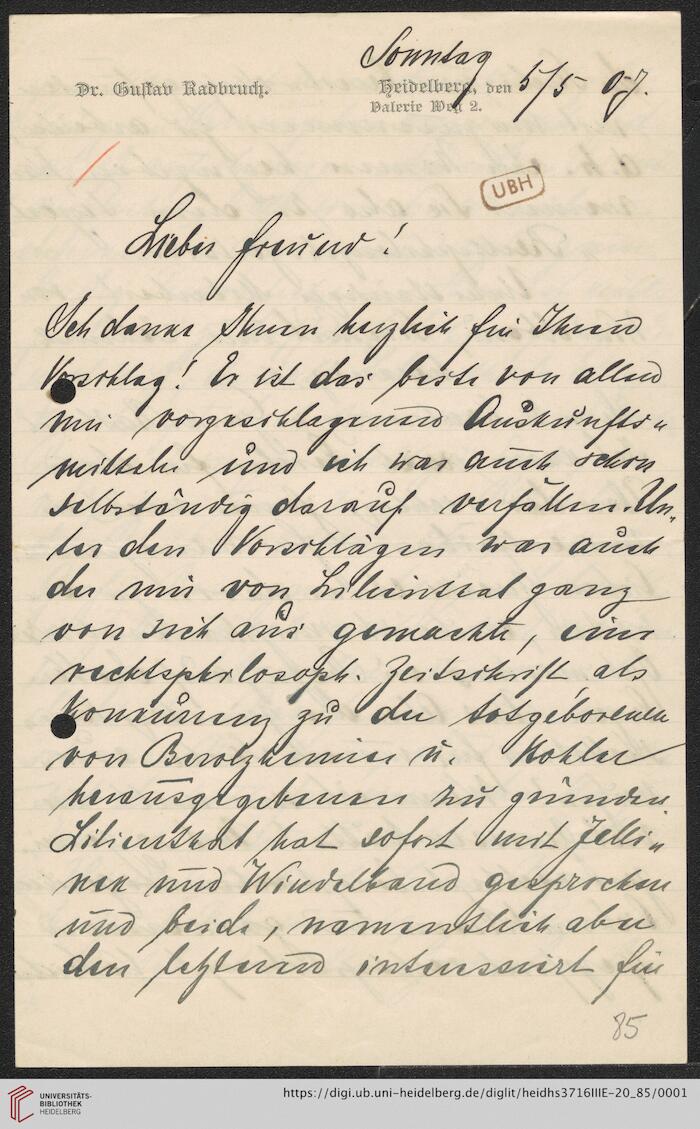 Sonntag
Dr. Gustav Radbruch.
Heidelberg, den 5/5 07.
Valerie Weg 2.
UBH
Lieber Freund!
Ich danke Ihnen herzlich für Ihren
Vorschlag! Er ist das beste von allen
mir vorgeschlagenen Auskunfts-
mitteln und ich war auch schon
selbständig darauf verfallen. Un-
ter den Vorschlägen war auch
der mir von Lilienthal ganz
von sich aus gemachte, eine
rechtsphilosoph. Zeitschrift, als
Konkurrenz zu der totgeborenen
von Berolzheimer u. Kohler
herausgegebenen zu gründen
Lilienthal hat sofort mit Jelli-
nek und Windelband gesprochen
und beide, namentlich aber
den letzteren interessiert für
85
UNIVERSITÄTS-
BIBLIOTHEK
HEIDELBERG
https://digi.ub.uni-heidelberg.de/diglit/heidhs3716IIIE-20_85/0001